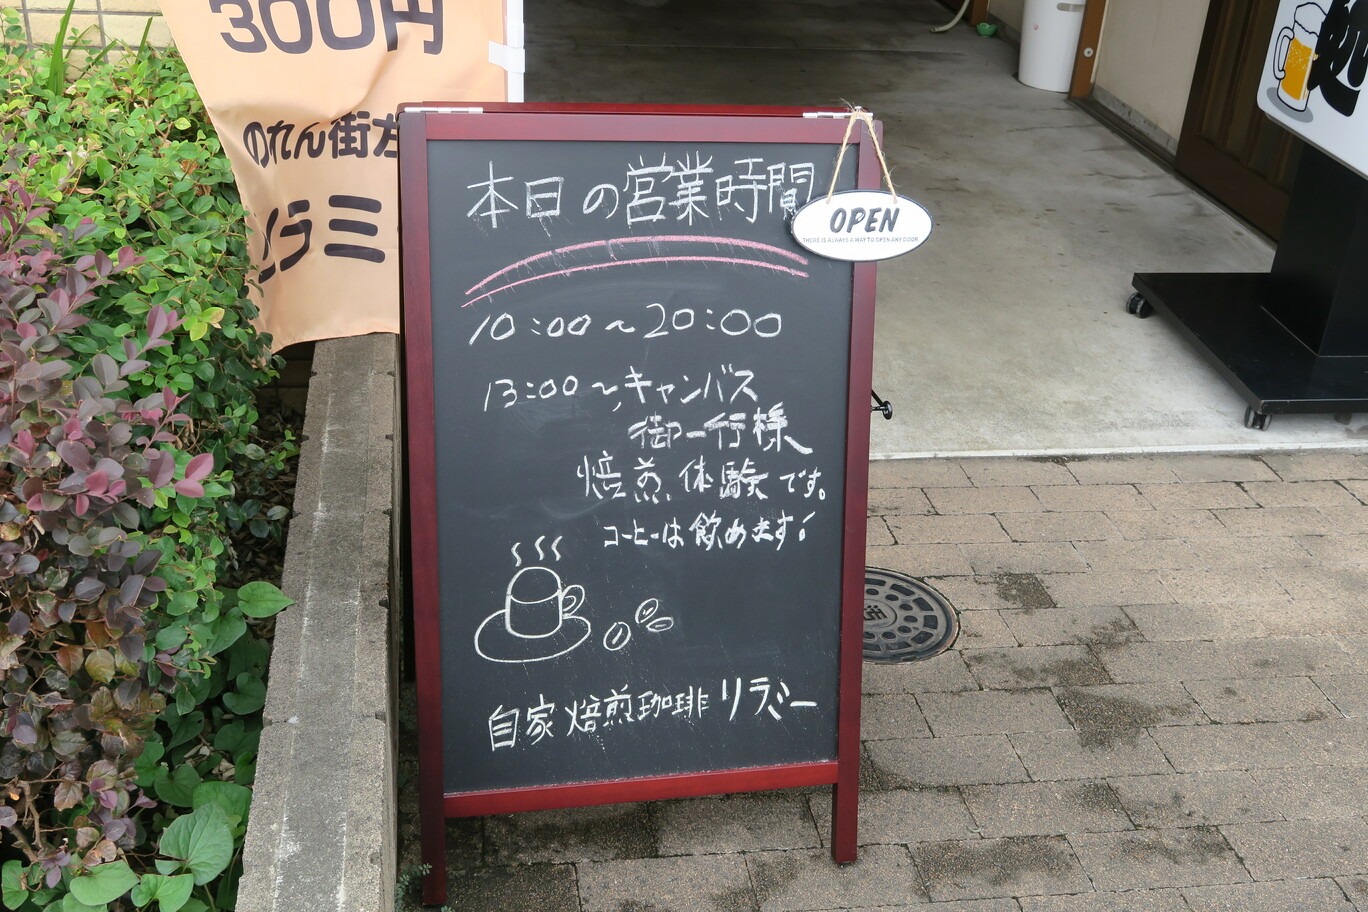 300円
のれん街
ラミ
本日の営業時間
OPEN
THERE IS ALWAYS A WAY TO OPEN ANY DOOR
10:00~20:00
13:00~キャンバス
御一行様
焙煎体験です。
コーヒーは飲めます!
自家焙煎珈琲リラミー
処